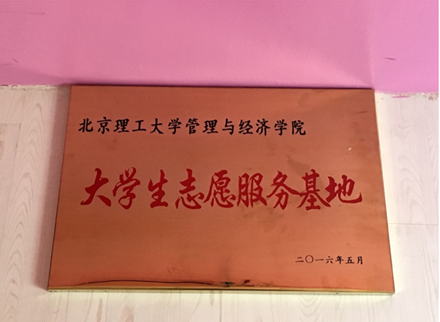 北京理工大学管理与经济学院
大学生志愿服务基地
二〇一六年五月